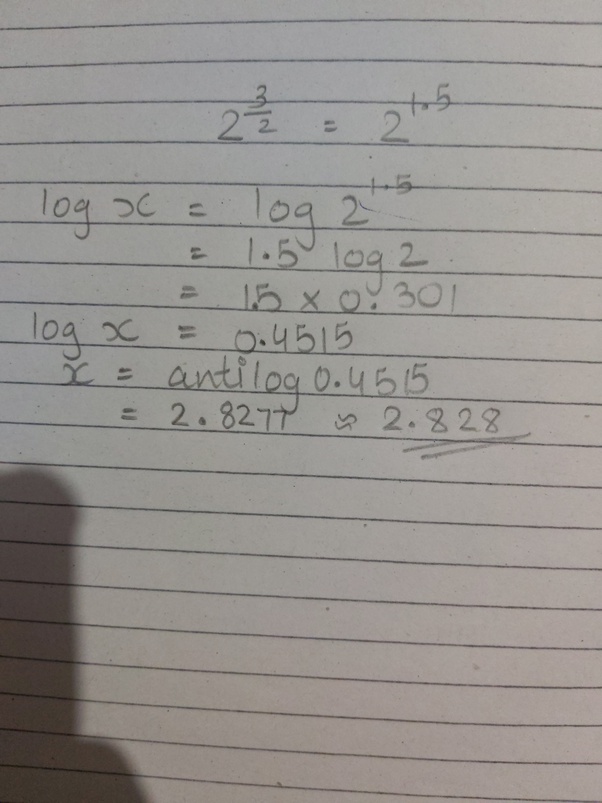 2^{3/2} = 2^{1.5}
log x = log 2^{1.5}
= 1.5 log 2
= 1.5 × 0.301
log x = 0.4515
x = antilog 0.4515
= 2.8277 ≈ 2.828